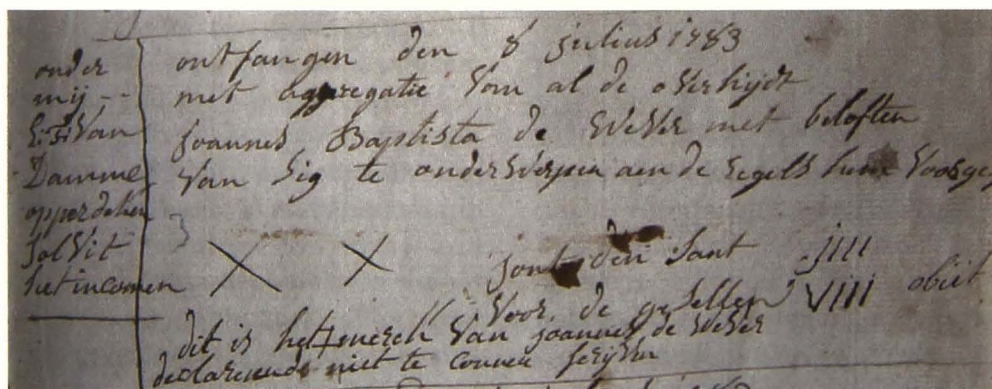 onder
mij --
Van
Damme
opperdeken
solvit
het incomen
ontfangen den 8 julius 1783
met aggregatie van al de overhijdt
joannes Baptista de Wever met beloften
van sig te onderwerpen aen de regels hem voorge
den Sant jiii
voor de gesellen VIII obiit
dit is het merck van joannes de Wever
declarerende niet te connen